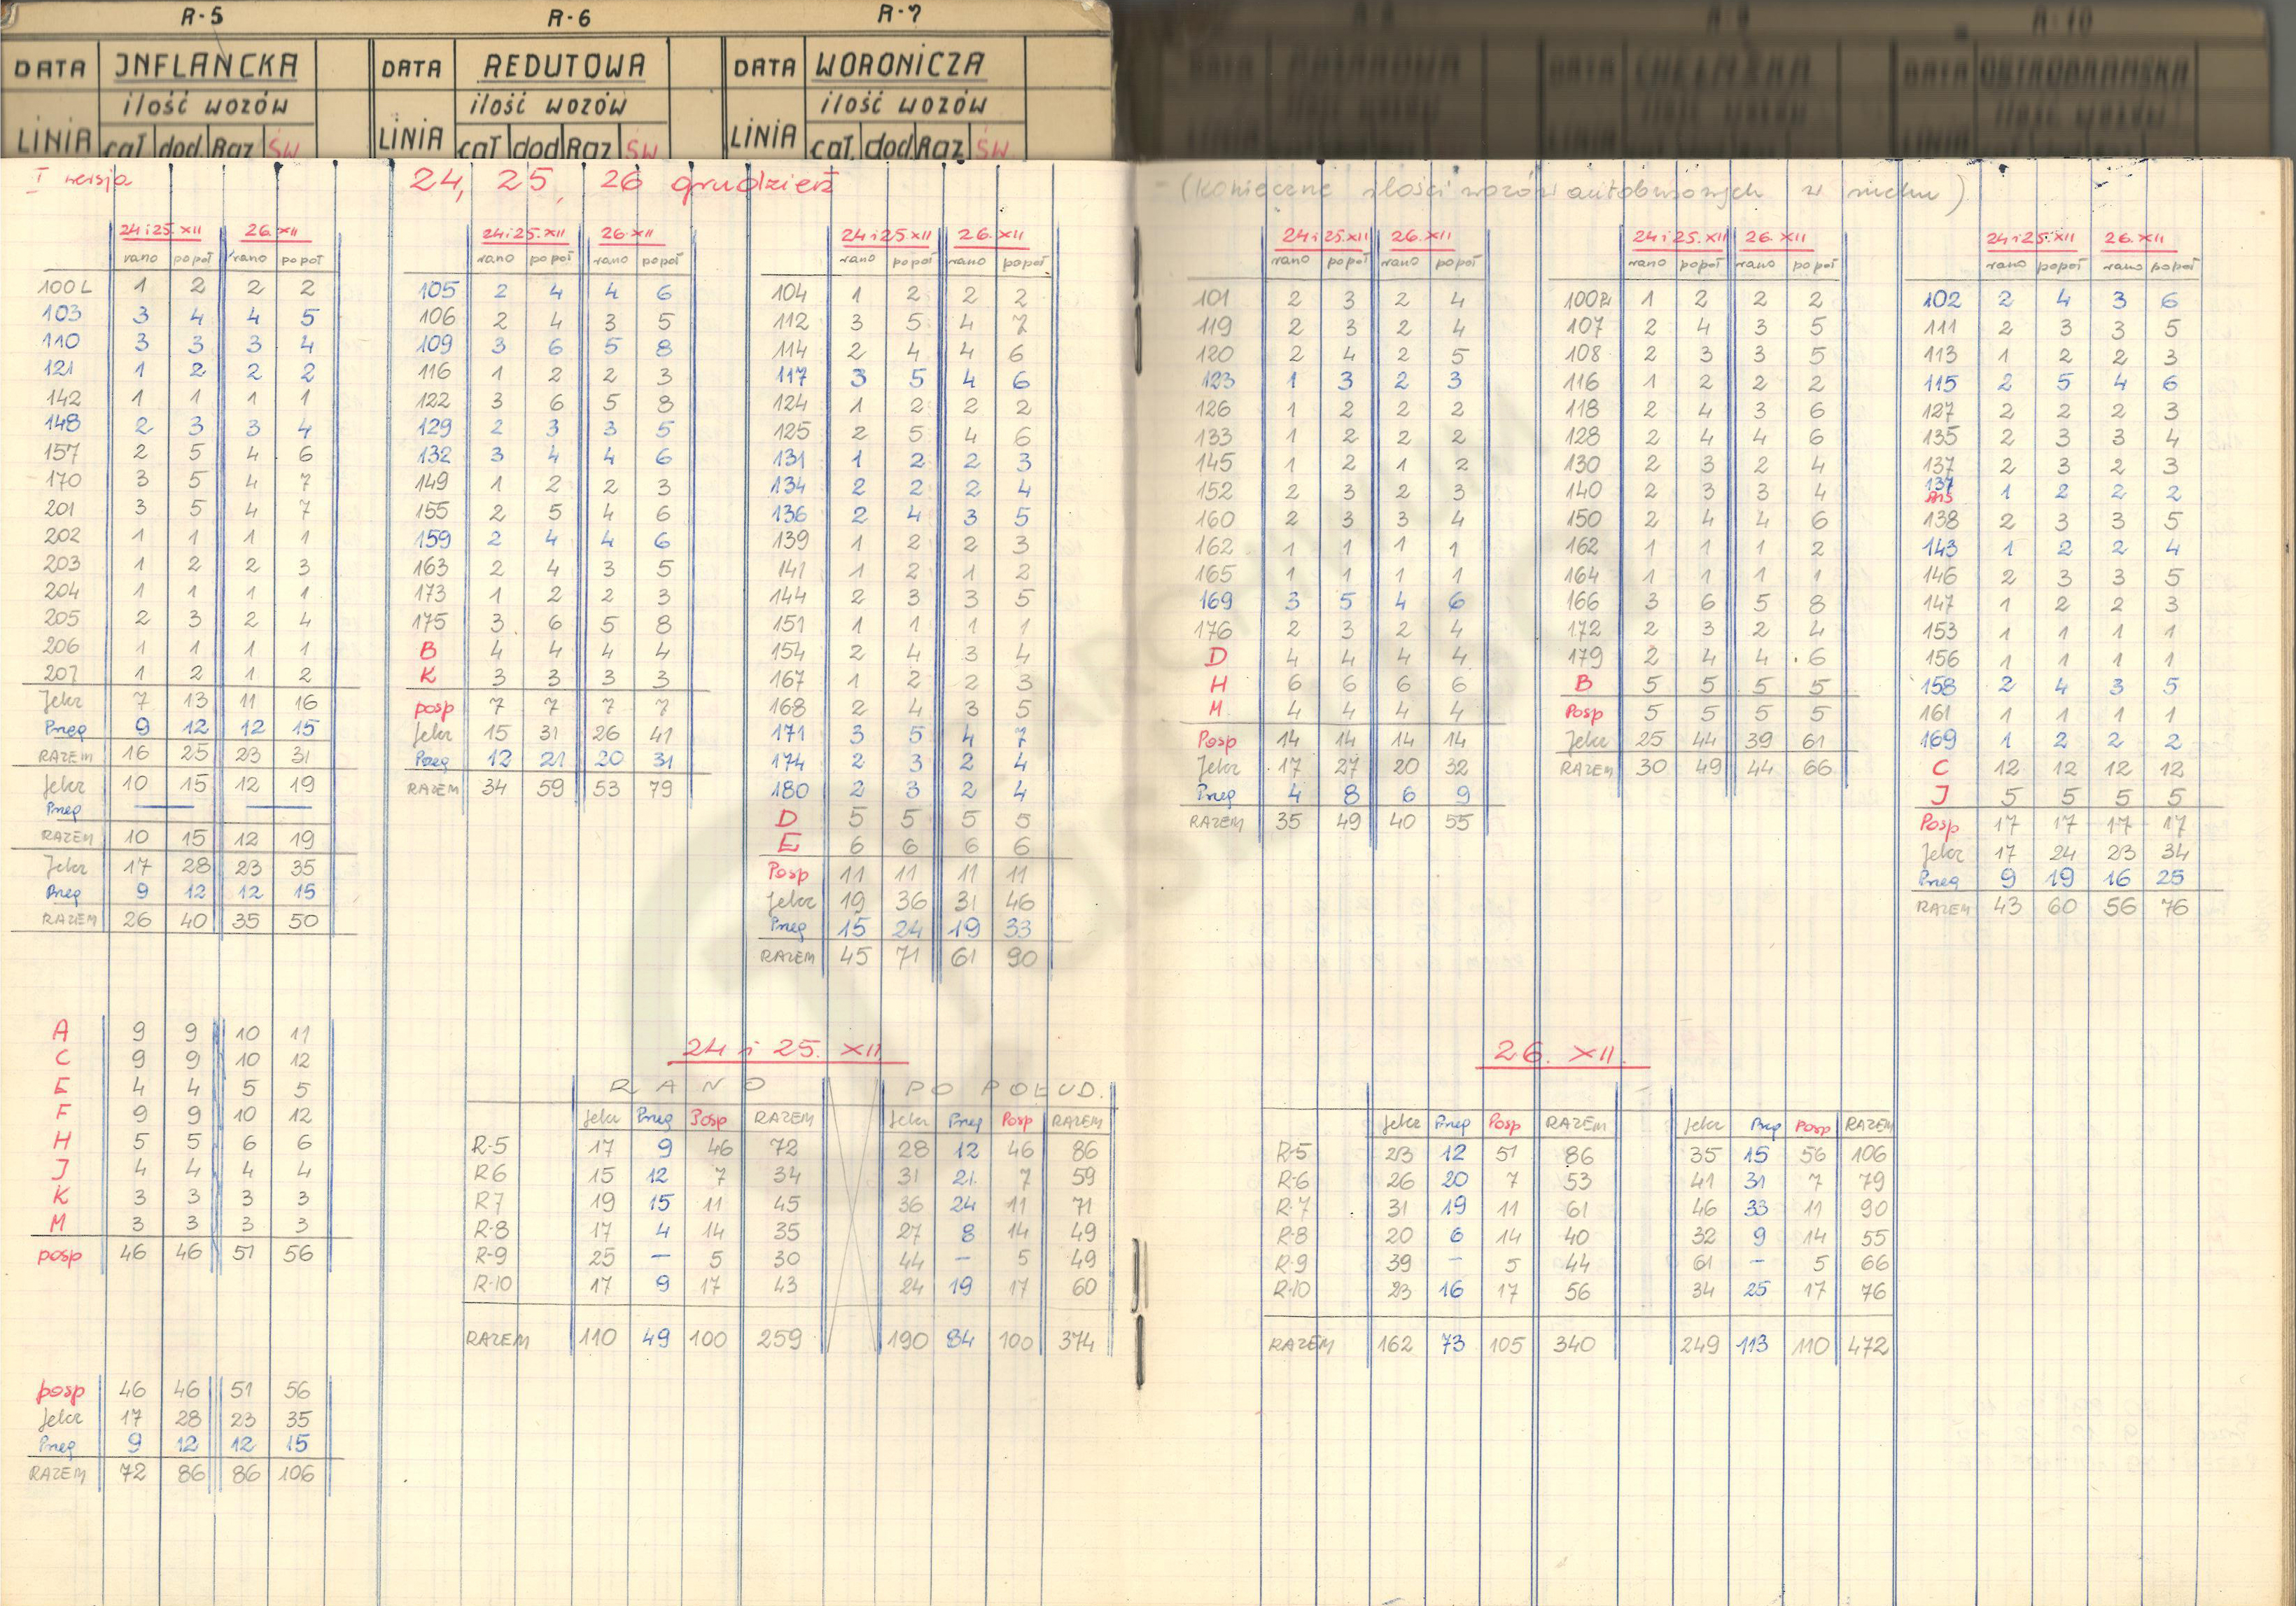 R-5
DATA INFLANCKA
ilość wozów
LINIA cał dod Raz ŚW
R-6
DATA REDUTOWA
ilość wozów
LINIA cał dod Raz ŚW
R-7
DATA WORONICZA
ilość wozów
LINIA cał. dod Raz ŚW.
R-10
DATA OSTROBRAMSKA
ilość wozów
LINIA
I wersja
24, 25, 26 grudzień
(Konieczne ilości wozów autobusowych w ruchu)
24 i 25. XII 26. XII
rano popoł rano popoł
100L 1 2 2 2
103 3 4 4 5
110 3 3 3 4
121 1 2 2 2
142 1 1 1 1
148 2 3 3 4
157 2 5 4 6
170 3 5 4 7
201 3 5 4 7
202 1 1 1 1
203 1 2 2 3
204 1 1 1 1
205 2 3 2 4
206 1 1 1 1
207 1 2 1 2
Jelcz 7 13 11 16
Przeg 9 12 12 15
RAZEM 16 25 23 31
Jelcz 10 15 12 19
Przeg — —
RAZEM 10 15 12 19
Jelcz 17 28 23 35
Przeg 9 12 12 15
RAZEM 26 40 35 50
A 9 9 10 11
C 9 9 10 12
E 4 4 5 5
F 9 9 10 12
H 5 5 6 6
J 4 4 4 4
K 3 3 3 3
M 3 3 3 3
posp 46 46 51 56
posp 46 46 51 56
Jelcz 17 28 23 35
Przeg 9 12 12 15
RAZEM 72 86 86 106
24 i 25. XII 26. XII
rano popoł rano popoł
105 2 4 4 6
106 2 4 3 5
109 3 6 5 8
116 1 2 2 3
122 3 6 5 8
129 2 3 3 5
132 3 4 4 6
149 1 2 2 3
155 2 5 4 6
159 2 4 4 6
163 2 4 3 5
173 1 2 2 3
175 3 6 5 8
B 4 4 4 4
K 3 3 3 3
posp 7 7 7 7
Jelcz 15 31 26 41
Przeg 12 21 20 31
RAZEM 34 59 53 79
24 i 25 XII 26. XII
rano popoł rano popoł
104 1 2 2 2
112 3 5 4 7
114 2 4 4 6
117 3 5 4 6
124 1 2 2 2
125 2 5 4 6
131 1 2 2 3
134 2 2 2 4
136 2 4 3 5
139 1 2 2 3
141 1 2 1 2
144 2 3 3 5
151 1 1 1 1
154 2 4 3 4
167 1 2 2 3
168 2 4 3 5
171 3 5 4 7
174 2 3 2 4
180 2 3 2 4
D 5 5 5 5
E 6 6 6 6
Posp 11 11 11 11
Jelcz 19 36 31 46
Przeg 15 24 19 33
RAZEM 45 71 61 90
24 i 25.XII 26.XII
rano popoł rano popoł
101 2 3 2 4
119 2 3 2 4
120 2 4 2 5
123 1 3 2 3
126 1 2 2 2
133 1 2 2 2
145 1 2 1 2
152 2 3 2 3
160 2 3 3 4
162 1 1 1 1
165 1 1 1 1
169 3 5 4 6
176 2 3 2 4
D 4 4 4 4
H 6 6 6 6
M 4 4 4 4
Posp 14 14 14 14
Jelcz 17 27 20 32
Przeg 4 8 6 9
RAZEM 35 49 40 55
24 i 25 XII 26. XII
rano popoł rano popoł
100P 1 2 2 2
107 2 4 3 5
108 2 3 3 5
116 1 2 2 2
118 2 4 3 6
128 2 4 4 6
130 2 3 2 4
140 2 3 3 4
150 2 4 4 6
162 1 1 1 2
164 1 1 1 1
166 3 6 5 8
172 2 3 2 4
179 2 4 4 6
B 5 5 5 5
Posp 5 5 5 5
Jelcz 25 44 39 61
RAZEM 30 49 44 66
24 i 25.XII 26. XII
rano popoł rano popoł
102 2 4 3 6
111 2 3 3 5
113 1 2 2 3
115 2 5 4 6
127 2 2 2 3
135 2 3 3 4
137 2 3 2 3
137 bis 1 2 2 2
138 2 3 3 5
143 1 2 2 4
146 2 3 3 5
147 1 2 2 3
153 1 1 1 1
156 1 1 1 1
158 2 4 3 5
161 1 1 1 1
169 1 2 2 2
C 12 12 12 12
J 5 5 5 5
Posp 17 17 17 17
Jelcz 17 24 23 34
Przeg 9 19 16 25
RAZEM 43 60 56 76
24 i 25. XII
RANO PO POŁUD.
Jelcz Przeg Posp RAZEM Jelcz Przeg Posp RAZEM
R-5 17 9 46 72 28 12 46 86
R6 15 12 7 34 31 21 7 59
R7 19 15 11 45 36 24 11 71
R-8 17 4 14 35 27 8 14 49
R-9 25 — 5 30 44 — 5 49
R-10 17 9 17 43 24 19 17 60
RAZEM 110 49 100 259 190 84 100 374
26. XII.
Jelcz Przeg Posp RAZEM Jelcz Przeg Posp RAZEM
R-5 23 12 51 86 35 15 56 106
R-6 26 20 7 53 41 31 7 79
R-7 31 19 11 61 46 33 11 90
R-8 20 6 14 40 32 9 14 55
R-9 39 — 5 44 61 — 5 66
R-10 23 16 17 56 34 25 17 76
RAZEM 162 73 105 340 249 113 110 472